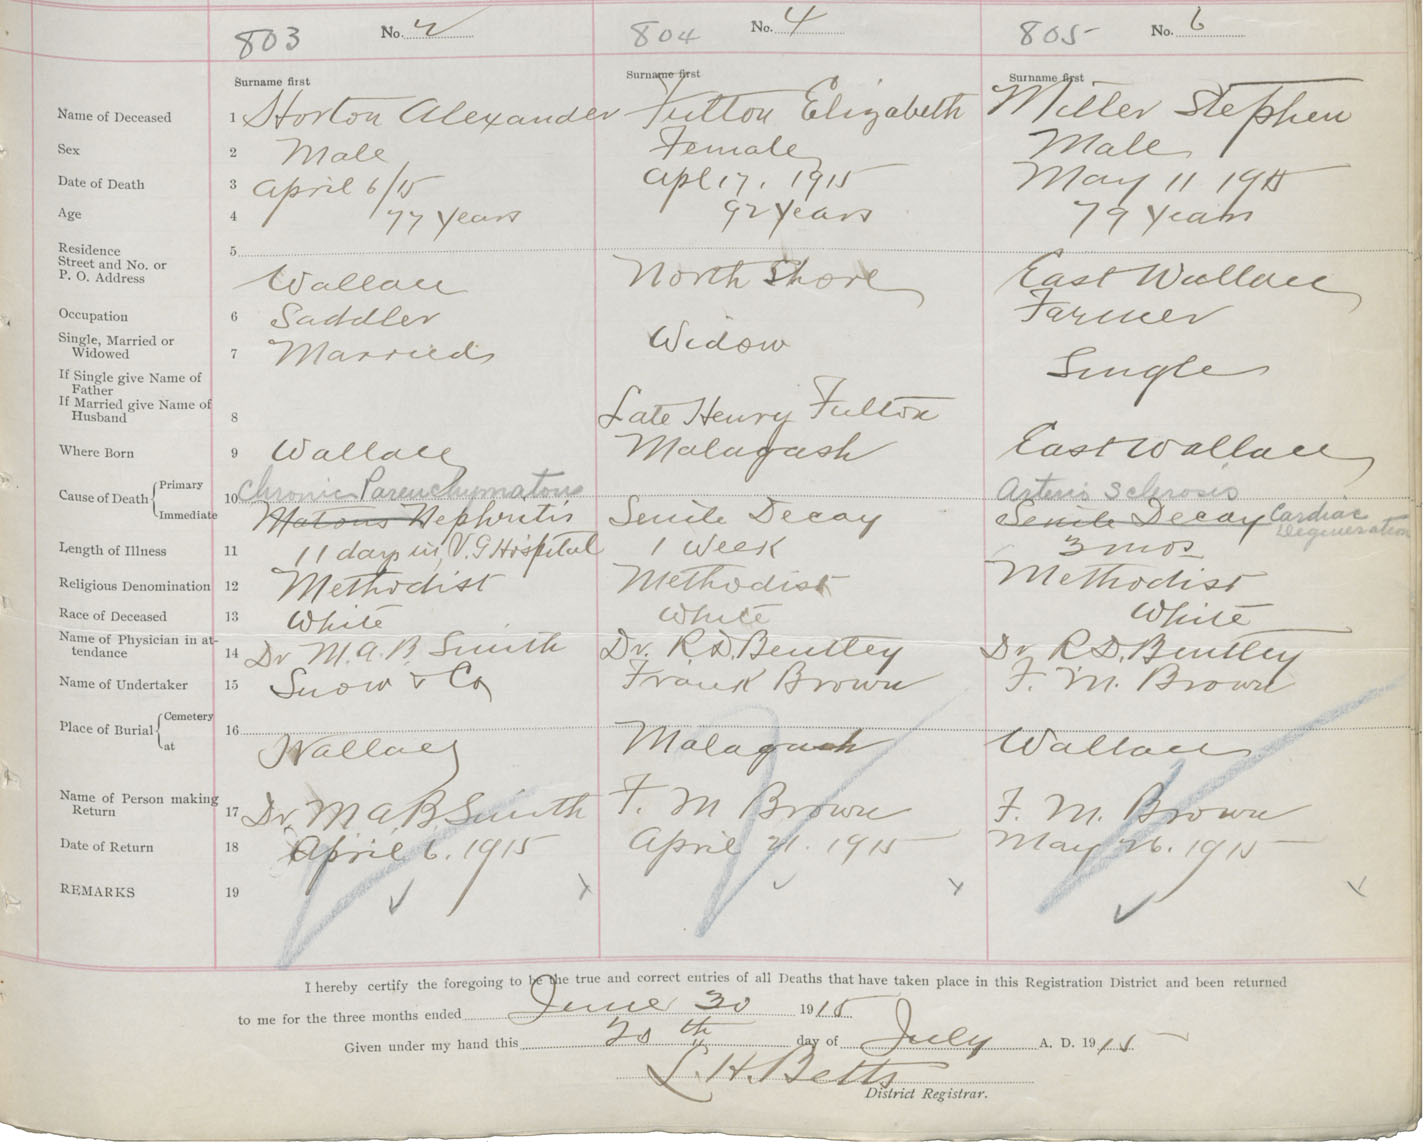 803 No. 2 804 No. 4 805 No. 6
Surname first Surname first Surname first
Name of Deceased 1 Horton Alexander Fulton Elizabeth Miller Stephen
Sex 2 Male Female Male
Date of Death 3 April 6/15 Apl 17, 1915 May 11 1915
Age 4 77 years 92 years 79 years
Residence 5
Street and No. or
P. O. Address Wallace North Shore East Wallace
Occupation 6 Saddler Farmer
Single, Married or
Widowed 7 Married Widow Single
If Single give Name of
Father
If Married give Name of
Husband 8 Late Henry Fulton
Where Born 9 Wallace Malagash East Wallace
Cause of Death Primary 10 Chronic Parenchymatous Arterio Sclerosis
Immediate Matous Nephritis Senile Decay Senile Decay Cardiac
Degeneration
Length of Illness 11 11 days in V. G Hospital 1 Week 3 mos
Religious Denomination 12 Methodist Methodist Methodist
Race of Deceased 13 White White White
Name of Physician in at-
tendance 14 Dr M. A. B. Smith Dr. R. D. Bentley Dr R. D. Bentley
Name of Undertaker 15 Snow & Co Frank Brown F. M. Brown
Place of Burial Cemetery 16
at Wallace Malagash Wallace
Name of Person making
Return 17 Dr. M A B Smith F. M Brown F. M. Brown
Date of Return 18 April 6. 1915 April 21. 1915 May 26. 1915
REMARKS 19
I hereby certify the foregoing to be the true and correct entries of all Deaths that have taken place in this Registration District and been returned
to me for the three months ended June 30 1915
Given under my hand this 20th day of July A. D. 1915
L. H. Betts
District Registrar.